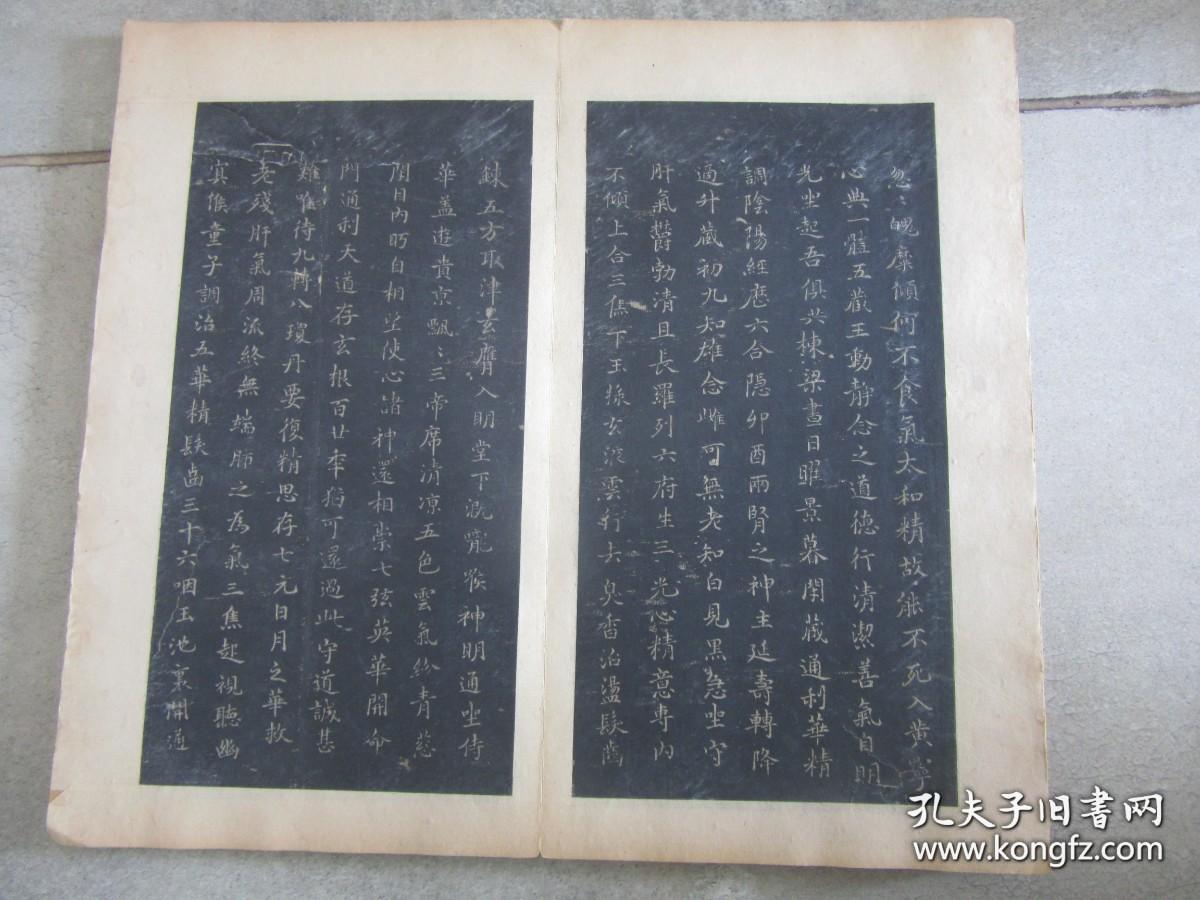 忽〻魄糜傾何不食氣太和精故能不死入黃寧
心典一體五藏王動靜念之道德行清潔善氣自明
光坐起吾俱共棟梁晝日曜景暮閉藏通利華精
調陰陽經歷六合隱卯酉兩腎之神主延壽轉降
適升藏初九知雄念雌可無老知白見黑急坐守
肝氣鬱勃清且長羅列六府生三光心精意專內
不傾上合三焦下玉漿玄液雲行去臭香治盪髮齒
鍊五方取津玄膺入明堂下溉嚨喉神明通坐侍
華蓋遊貴京飄〻三帝席清凉五色雲氣紛青葱
閉目內眄自相望使心諸神還相崇七弦英華開命
門通利天道存玄根百廿年猶可還過此守道誠甚
難唯待九轉八瓊丹要復精思存七元日月之華救
老殘肝氣周流終無端肺之為氣三焦起視聽幽
冥候童子調治五華精髮齒三十六咽玉池裏開通
孔夫子旧书网
www.kongfz.com